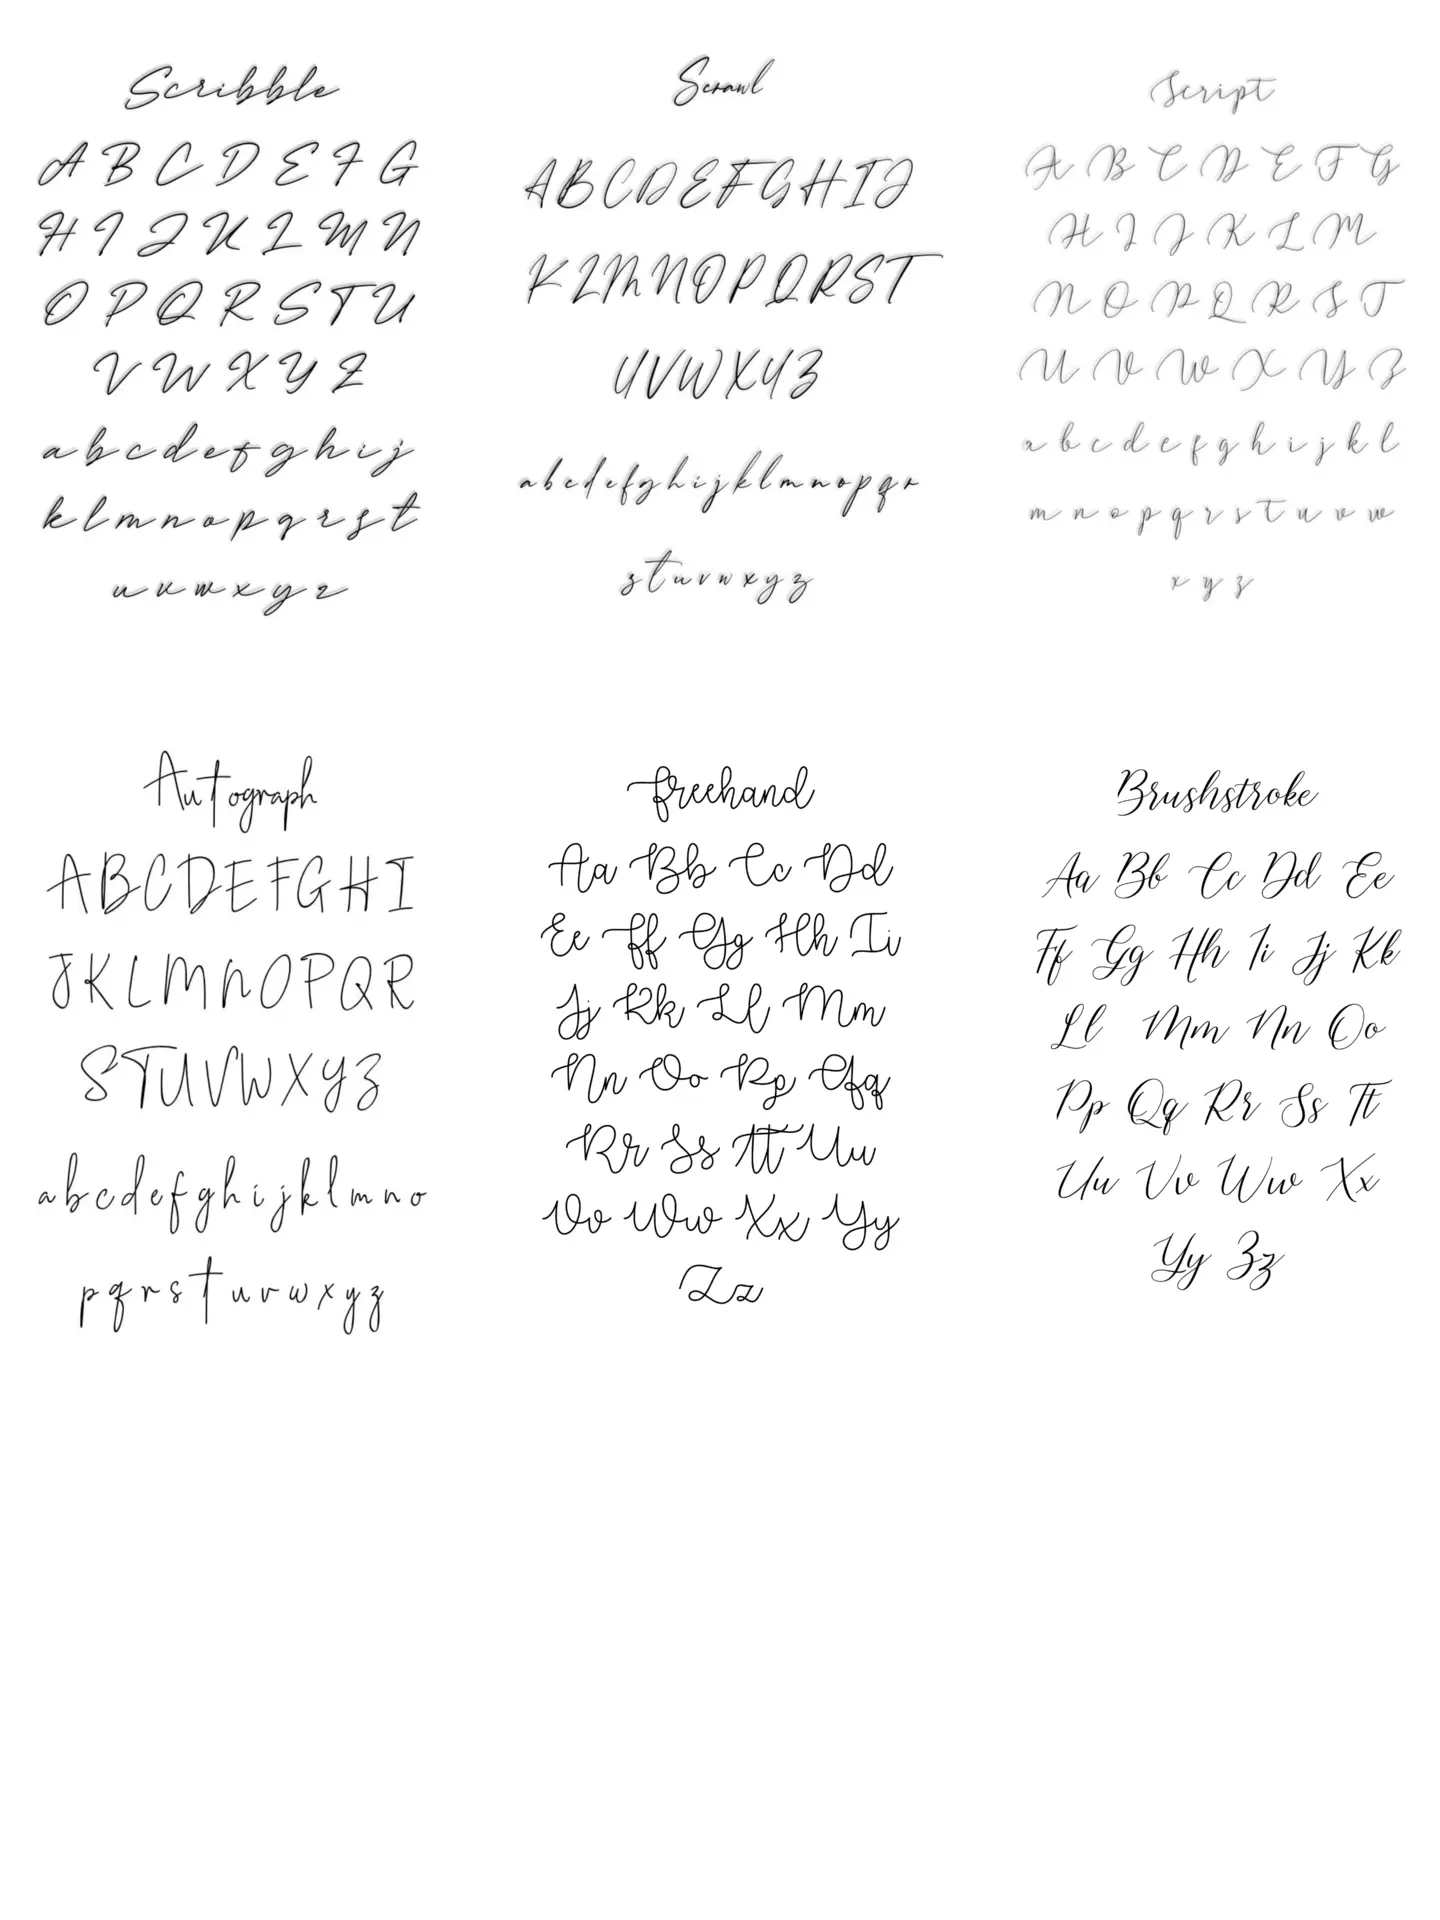 Scribble
A B C D E F G
H I J K L M N
O P Q R S T U
V W X Y Z
a b c d e f g h i j
k l m n o p q r s t
u v w x y z
Scrawl
A B C D E F G H I J
K L M N O P Q R S T
U V W X Y Z
a b c d e f g h i j k l m n o p q r
s t u v w x y z
Script
A B C D E F G
H I J K L M
N O P Q R S T
U V W X Y Z
a b c d e f g h i j k l
m n o p q r s t u v w
x y z
Autograph
A B C D E F G H I
J K L M N O P Q R
S T U V W X Y Z
a b c d e f g h i j k l m n o
p q r s t u v w x y z
freehand
Aa Bb Cc Dd
Ee Ff Gg Hh Ii
Jj Kk Ll Mm
Nn Oo Pp Qq
Rr Ss Tt Uu
Vv Ww Xx Yy
Zz
Brushstroke
Aa Bb Cc Dd Ee
Ff Gg Hh Ii Jj Kk
Ll Mm Nn Oo
Pp Qq Rr Ss Tt
Uu Vv Ww Xx
Yy Zz